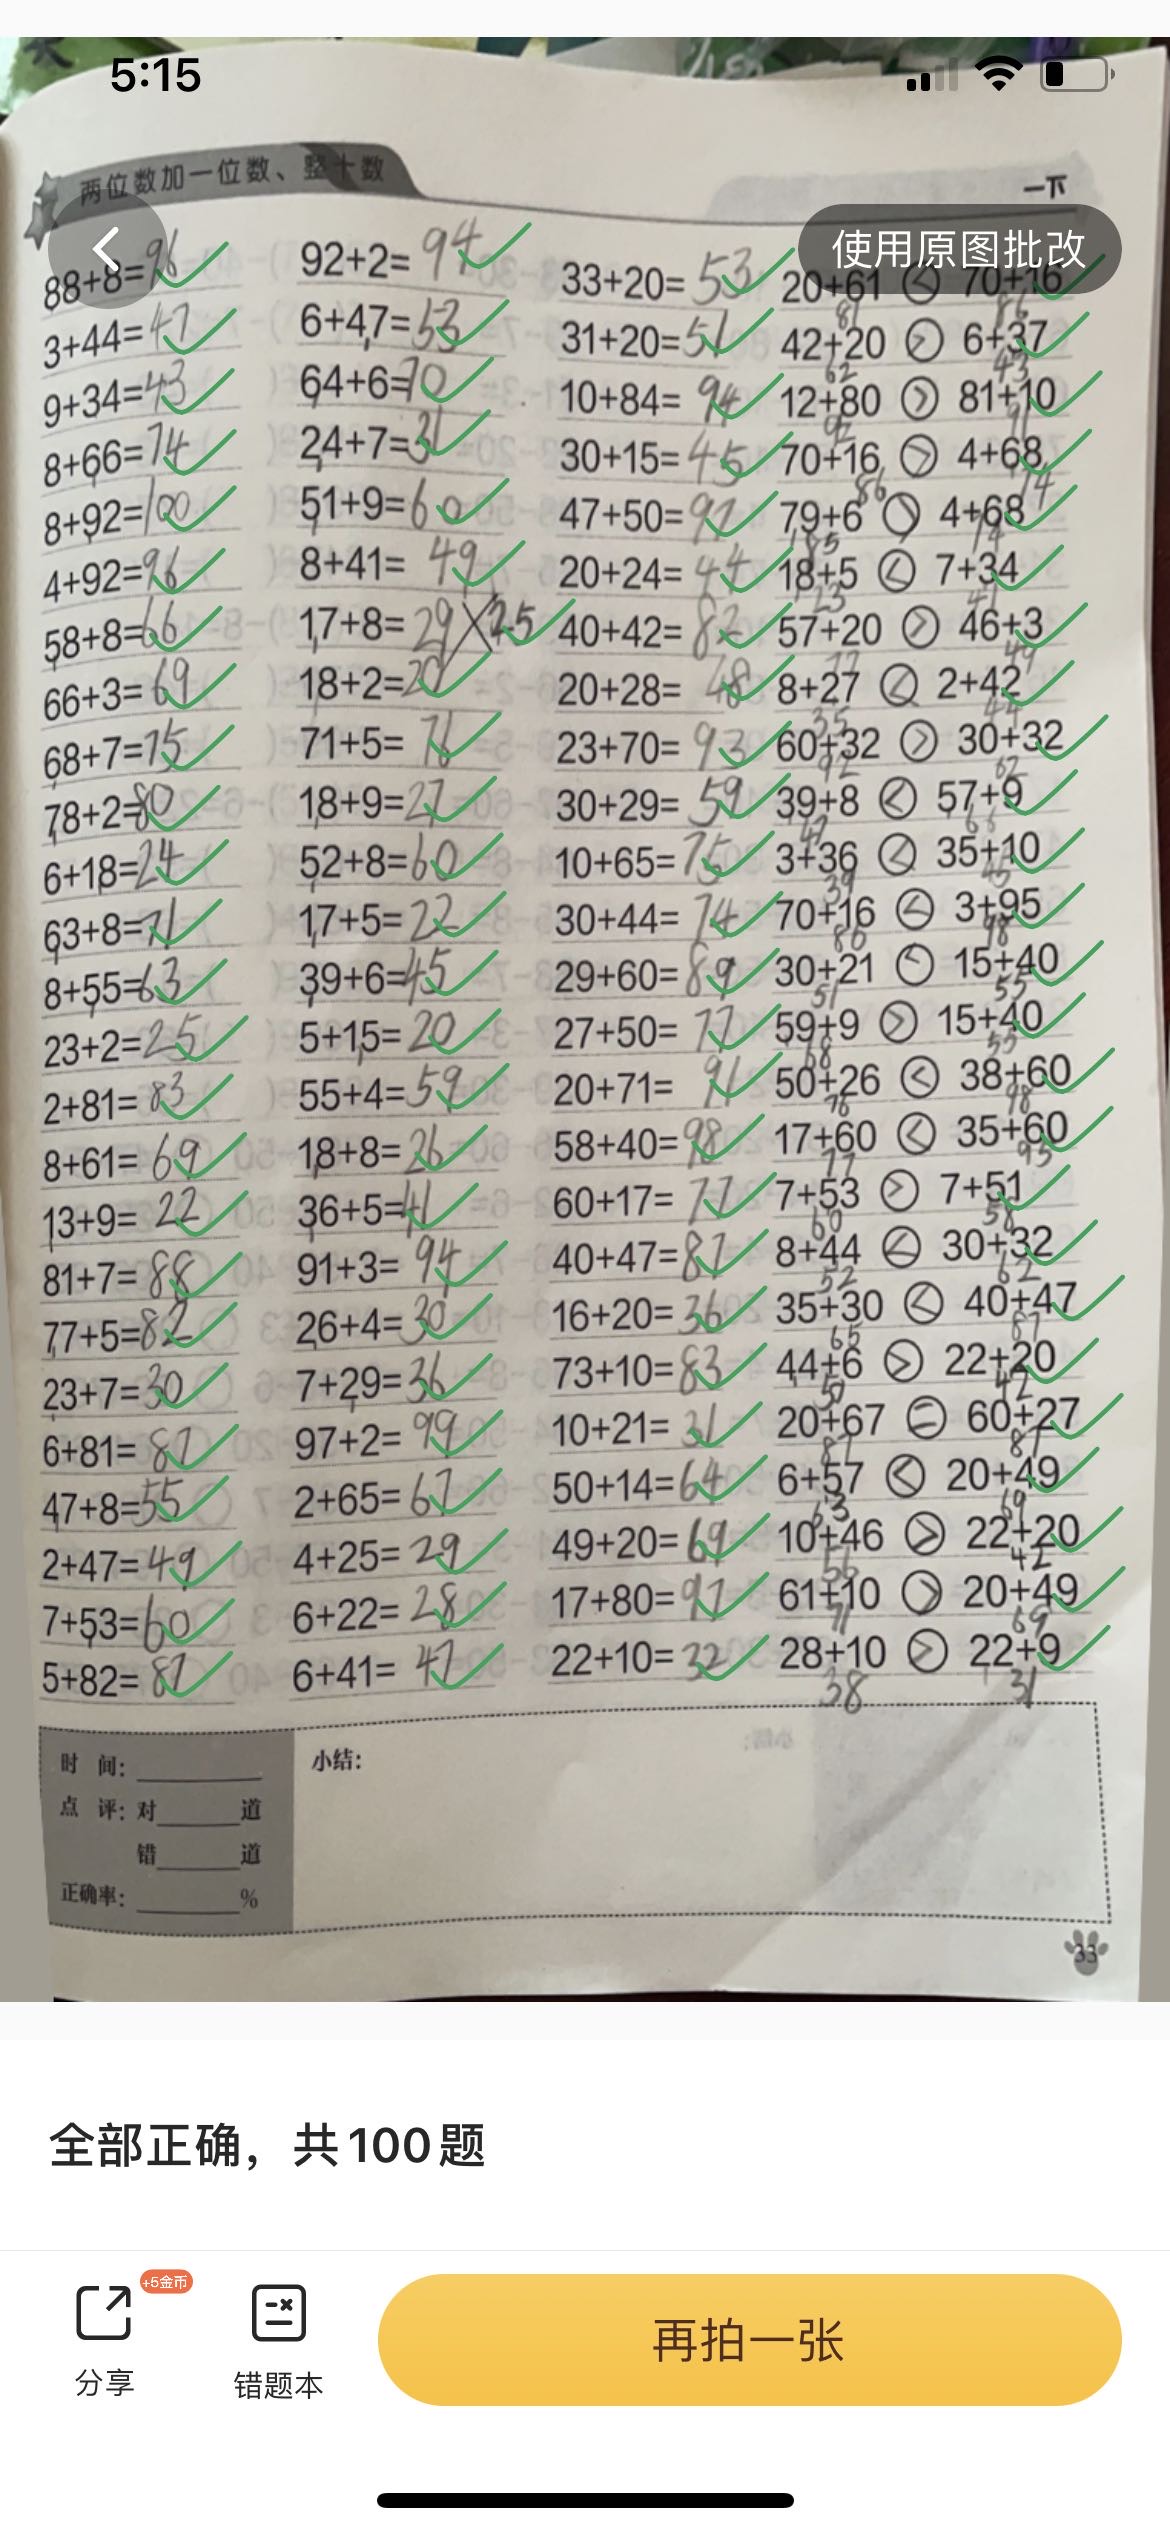 5:15
两位数加一位数、整十数
一下
使用原图批改
88+8=96 92+2=94 33+20=53 20+61 < 70+16
81 86
3+44=47 6+47=53 31+20=51 42+20 > 6+37
62 43
9+34=43 64+6=70 10+84=94 12+80 > 81+10
92 91
8+66=74 24+7=31 30+15=45 70+16 > 4+68
86 74
8+92=100 51+9=60 47+50=97 79+6 > 4+68
85 74
4+92=96 8+41=49 20+24=44 18+5 < 7+34
23 41
58+8=66 17+8=29 25 40+42=82 57+20 > 46+3
77 49
66+3=69 18+2=20 20+28=48 8+27 < 2+42
35 44
68+7=75 71+5=76 23+70=93 60+32 > 30+32
92 62
78+2=80 18+9=27 30+29=59 39+8 < 57+9
47 66
6+18=24 52+8=60 10+65=75 3+36 < 35+10
39 45
63+8=71 17+5=22 30+44=74 70+16 < 3+95
86 98
8+55=63 39+6=45 29+60=89 30+21 < 15+40
51 55
23+2=25 5+15=20 27+50=77 59+9 > 15+40
68 55
2+81=83 55+4=59 20+71=91 50+26 < 38+60
76 98
8+61=69 18+8=26 58+40=98 17+60 < 35+60
77 95
13+9=22 36+5=41 60+17=77 7+53 > 7+51
60 58
81+7=88 91+3=94 40+47=87 8+44 < 30+32
52 62
77+5=82 26+4=30 16+20=36 35+30 < 40+47
65 87
23+7=30 7+29=36 73+10=83 44+6 > 22+20
50 42
6+81=87 97+2=99 10+21=31 20+67 = 60+27
87 87
47+8=55 2+65=67 50+14=64 6+57 < 20+49
63 69
2+47=49 4+25=29 49+20=69 10+46 > 22+20
56 42
7+53=60 6+22=28 17+80=97 61+10 > 20+49
71 69
5+82=87 6+41=47 22+10=32 28+10 > 22+9
38 31
时 间:
小结:
点 评:对 道
错 道
正确率: %
33
全部正确，共100题
+5金币
分享
错题本
再拍一张